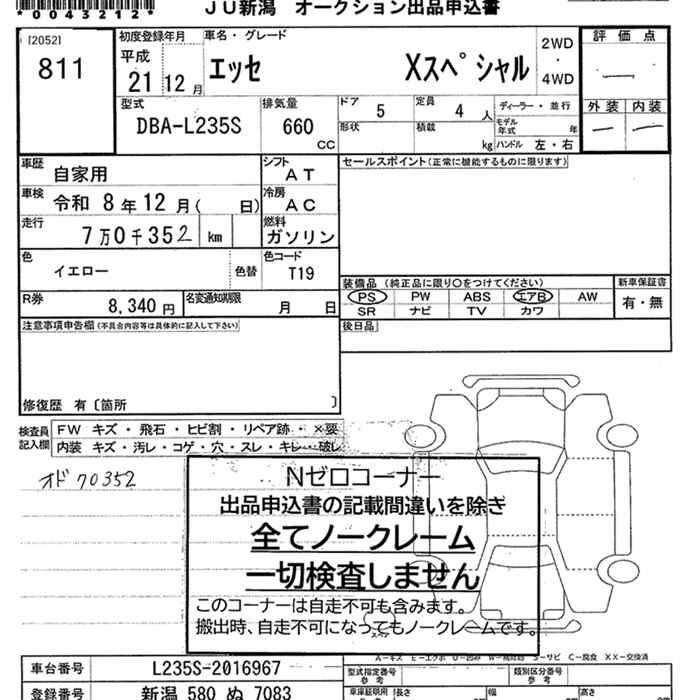 *0043212*
JU新潟 オークション出品申込書
[2052]
811
初度登録年月
平成
21 12 月
車名・グレード
エッセ Xスペシャル
2WD
・
4WD
評価点
―
外装 内装
― ―
型式
DBA-L235S
排気量
660
CC
ドア 5
定員 4 人
形状
積載 kg
ディーラー・並行
モデル年式 年
ハンドル 左・右
車歴 自家用
シフト AT
セールスポイント(正常に機能するものに限ります)
車検 令和 8年12月( 日)
冷房 AC
走行 7万0千352 km
燃料 ガソリン
色 イエロー 色替
色コード T19
R券 8,340 円
名変通知期限 月 日
装備品 (純正品に限り○をつけてください)
PS PW ABS エアB AW
SR ナビ TV カワ
新車保証書
有・無
後日品
注意事項申告欄(不具合内容等は具体的に記入して下さい)
修復歴 有〔箇所 〕
検査員記入欄
FW キズ・飛石・ヒビ割・リペア跡・×要
内装 キズ・汚レ・コゲ・穴・スレ・キレ・破レ
オド 70352
Nゼロコーナー
出品申込書の記載間違いを除き
全てノークレーム
一切検査しません
このコーナーは自走不可も含みます。
搬出時、自走不可になってもノークレームです。
車台番号 L235S-2016967
型式指定番号 参考
類別区分番号 参考
登録番号 新潟 580 ぬ 7083
車庫証明用 参考
長さ
幅
高さ